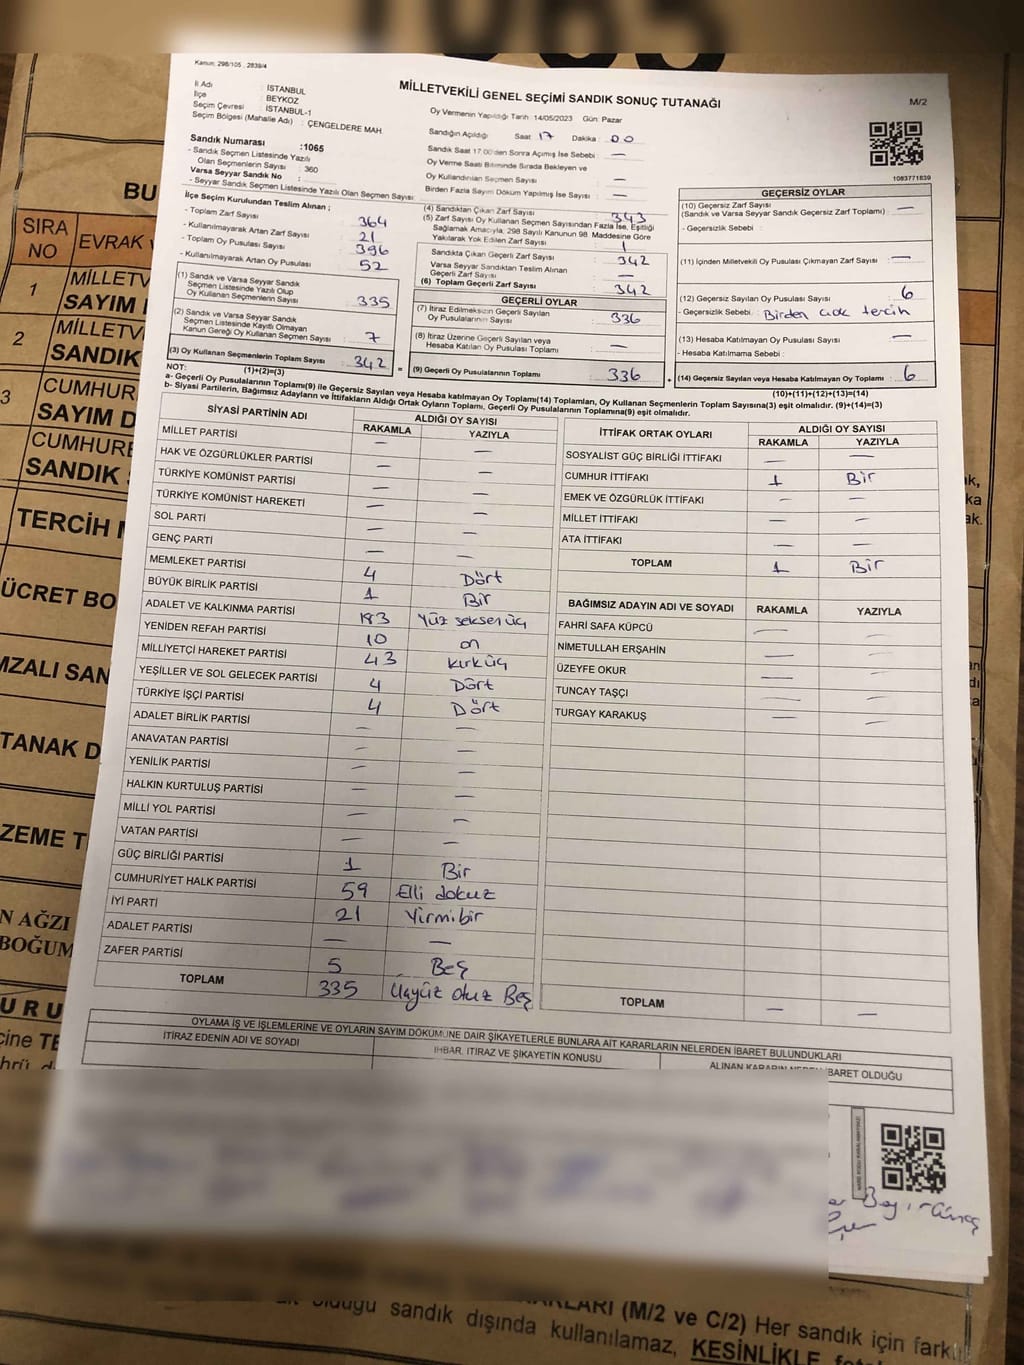 1065
Kanun: 298/105 , 2839/4
MİLLETVEKİLİ GENEL SEÇİMİ SANDIK SONUÇ TUTANAĞI
M/2
İl Adı : İSTANBUL
İlçe : BEYKOZ
Seçim Çevresi : İSTANBUL-1
Seçim Bölgesi (Mahalle Adı) : ÇENGELDERE MAH.
Sandık Numarası :1065
- Sandık Seçmen Listesinde Yazılı
Olan Seçmenlerin Sayısı : 360
Varsa Seyyar Sandık No :
- Seyyar Sandık Seçmen Listesinde Yazılı Olan Seçmen Sayısı:
Oy Vermenin Yapıldığı Tarih: 14/05/2023 Gün: Pazar
Sandığın Açıldığı Saat 17 Dakika : 00
Sandık Saat 17.00'den Sonra Açılmış İse Sebebi : —
Oy Verme Saati Bitiminde Sırada Bekleyen ve
Oy Kullandırılan Seçmen Sayısı : —
Birden Fazla Sayım Döküm Yapılmış İse Sayısı : —
1083771839
İlçe Seçim Kurulundan Teslim Alınan ;
- Toplam Zarf Sayısı : 364
- Kullanılmayarak Artan Zarf Sayısı : 21
- Toplam Oy Pusulası Sayısı : 396
- Kullanılmayarak Artan Oy Pusulası : 52
(1) Sandık ve Varsa Seyyar Sandık
Seçmen Listesinde Yazılı Olup
Oy Kullanan Seçmenlerin Sayısı : 335
(2) Sandık ve Varsa Seyyar Sandık
Seçmen Listesinde Kayıtlı Olmayan
Kanun Gereği Oy Kullanan Seçmen Sayısı : 7
(3) Oy Kullanan Seçmenlerin Toplam Sayısı : 342
(1)+(2)=(3)
(4) Sandıktan Çıkan Zarf Sayısı : 343
(5) Zarf Sayısı Oy Kullanan Seçmen Sayısından Fazla İse, Eşitliği
Sağlamak Amacıyla; 298 Sayılı Kanunun 98. Maddesine Göre
Yakılarak Yok Edilen Zarf Sayısı : 1
Sandıkta Çıkan Geçerli Zarf Sayısı : 342
Varsa Seyyar Sandıktan Teslim Alınan
Geçerli Zarf Sayısı : —
(6) Toplam Geçerli Zarf Sayısı : 342
GEÇERLİ OYLAR
(7) İtiraz Edilmeksizin Geçerli Sayılan
Oy Pusulalarının Sayısı : 336
(8) İtiraz Üzerine Geçerli Sayılan veya
Hesaba Katılan Oy Pusulası Toplamı : —
= (9) Geçerli Oy Pusulalarının Toplamı : 336 +
GEÇERSİZ OYLAR
(10) Geçersiz Zarf Sayısı : —
(Sandık ve Varsa Seyyar Sandık Geçersiz Zarf Toplamı)
- Geçersizlik Sebebi :
(11) İçinden Milletvekili Oy Pusulası Çıkmayan Zarf Sayısı : —
(12) Geçersiz Sayılan Oy Pusulası Sayısı : 6
- Geçersizlik Sebebi : Birden çok tercih
(13) Hesaba Katılmayan Oy Pusulası Sayısı : —
- Hesaba Katılmama Sebebi :
(14) Geçersiz Sayılan veya Hesaba Katılmayan Oy Toplamı : 6
(10)+(11)+(12)+(13)=(14)
NOT:
a- Geçerli Oy Pusulalarının Toplamı(9) ile Geçersiz Sayılan veya Hesaba Katılmayan Oy Toplamı(14) Toplamları, Oy Kullanan Seçmenlerin Toplam Sayısına(3) eşit olmalıdır. (9)+(14)=(3)
b- Siyasi Partilerin, Bağımsız Adayların ve İttifakların Aldığı Ortak Oyların Toplamı, Geçerli Oy Pusulalarının Toplamına(9) eşit olmalıdır.
SİYASİ PARTİNİN ADI ALDIĞI OY SAYISI
RAKAMLA YAZIYLA
MİLLET PARTİSİ — —
HAK VE ÖZGÜRLÜKLER PARTİSİ — —
TÜRKİYE KOMÜNİST PARTİSİ — —
TÜRKİYE KOMÜNİST HAREKETİ — —
SOL PARTİ — —
GENÇ PARTİ — —
MEMLEKET PARTİSİ 4 Dört
BÜYÜK BİRLİK PARTİSİ 1 Bir
ADALET VE KALKINMA PARTİSİ 183 Yüz seksen üç
YENİDEN REFAH PARTİSİ 10 on
MİLLİYETÇİ HAREKET PARTİSİ 43 kırküç
YEŞİLLER VE SOL GELECEK PARTİSİ 4 Dört
TÜRKİYE İŞÇİ PARTİSİ 4 Dört
ADALET BİRLİK PARTİSİ — —
ANAVATAN PARTİSİ — —
YENİLİK PARTİSİ — —
HALKIN KURTULUŞ PARTİSİ — —
MİLLİ YOL PARTİSİ — —
VATAN PARTİSİ — —
GÜÇ BİRLİĞİ PARTİSİ 1 Bir
CUMHURİYET HALK PARTİSİ 59 Elli dokuz
İYİ PARTİ 21 Yirmibir
ADALET PARTİSİ — —
ZAFER PARTİSİ 5 Beş
TOPLAM 335 Üçyüz otuz Beş
İTTİFAK ORTAK OYLARI ALDIĞI OY SAYISI
RAKAMLA YAZIYLA
SOSYALİST GÜÇ BİRLİĞİ İTTİFAKI — —
CUMHUR İTTİFAKI 1 Bir
EMEK VE ÖZGÜRLÜK İTTİFAKI — —
MİLLET İTTİFAKI — —
ATA İTTİFAKI — —
TOPLAM 1 Bir
BAĞIMSIZ ADAYIN ADI VE SOYADI RAKAMLA YAZIYLA
FAHRİ SAFA KÜPCÜ — —
NİMETULLAH ERŞAHİN — —
ÜZEYFE OKUR — —
TUNCAY TAŞÇI — —
TURGAY KARAKUŞ — —
TOPLAM — —
OYLAMA İŞ VE İŞLEMLERİNE VE OYLARIN SAYIM DÖKÜMÜNE DAİR ŞİKAYETLERLE BUNLARA AİT KARARLARIN NELERDEN İBARET BULUNDUKLARI
İTİRAZ EDENİN ADI VE SOYADI
İHBAR, İTİRAZ VE ŞİKAYETİN KONUSU
ALINAN KARARIN NEDEN İBARET OLDUĞU
BU
SIRA NO EVRAK
1 MİLLETV
SAYIM
2 MİLLETV
SANDIK
3 CUMHUR
SAYIM D
CUMHURB
SANDIK
TERCİH
ÜCRET BO
MZALI SAN
TANAK D
ZEME T
N AĞZI
BOĞUM
URU
çine TE
(M/2 ve C/2) Her sandık için farklı
olduğu sandık dışında kullanılamaz, KESİNLİKLE